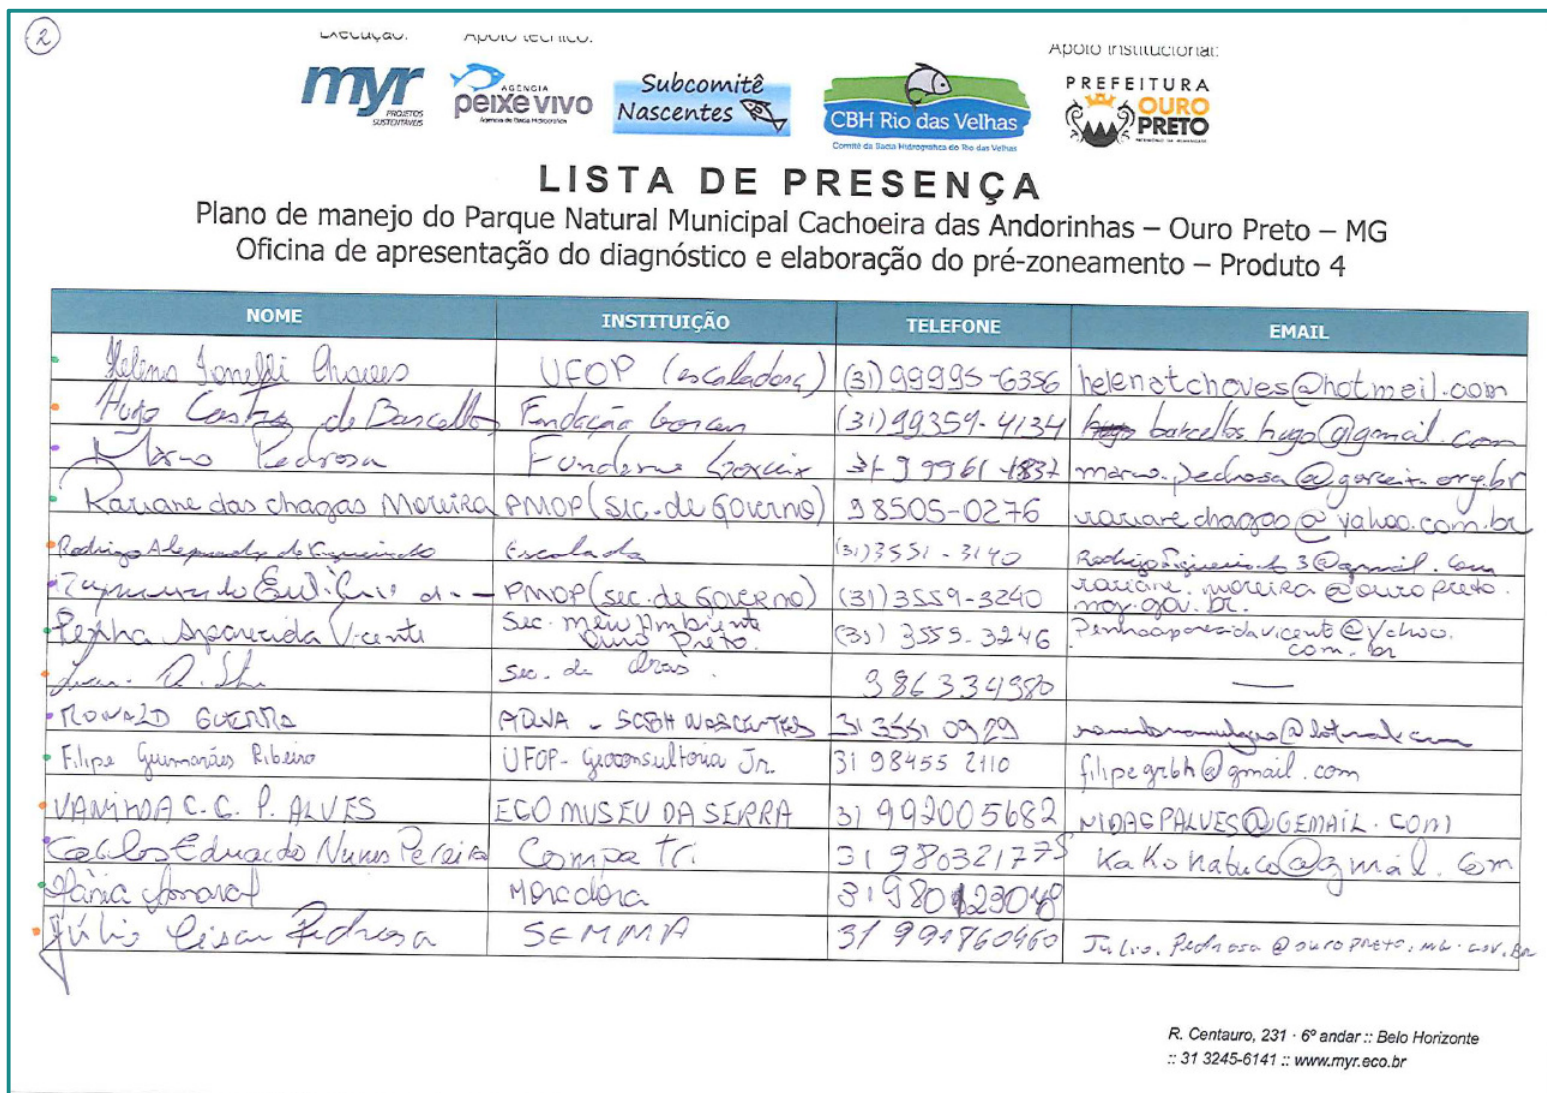 2
Execução:
Apoio técnico:
Apoio institucional:
myr
PROJETOS
SUSTENTÁVEIS
AGÊNCIA
peixe vivo
Agência de Bacia Hidrográfica
Subcomitê
Nascentes
CBH Rio das Velhas
Comitê da Bacia Hidrográfica do Rio das Velhas
PREFEITURA
OURO
PRETO
PATRIMÔNIO DA HUMANIDADE
LISTA DE PRESENÇA
Plano de manejo do Parque Natural Municipal Cachoeira das Andorinhas – Ouro Preto – MG
Oficina de apresentação do diagnóstico e elaboração do pré-zoneamento – Produto 4
NOME INSTITUIÇÃO TELEFONE EMAIL
Helena Chaves UFOP (escaladora) (31) 99995-6356 helenatchaves@hotmail.com
Hugo Castro de Barcellos Fundação (31) 99359-4134 barcellos.hugo@gmail.com
Pedrosa 31 9 9961-1837
Rauiane das chagas Moreira PMOP (sec. de Governo) 98505-0276 rauiane chagas@yahoo.com.br
Rodrigo de Figueiredo Escalada (31) 3551-3140
PMOP (sec. de Governo) (31) 3559-3240 rauiane.moreira@ouropreto.
mg.gov.br.
Penha Aparecida Vicente Sec. Meio Ambiente (31) 3559-3246 Penhaaparecidavicente@yahoo.
Ouro Preto. com.br
Sec. de Obras. 986334980 —
RONALD GUERRA SCBH NASCENTES 31 3551 0929
Filipe Guimarães Ribeiro UFOP - Geoconsultoria Jr. 31 98455 2110 filipegrbh@gmail.com
VANINDA C. G. P. ALVES ECO MUSEU DA SERRA 31 992005682 NIDAGPALVES@GEMAIL.COM
Carlos Eduardo Nunes Pereira Compatri 31 980321775 Kakonabuco@gmail.com
Amaral Moradora
Júlio Cesar Pedrosa SEMMA 31 991860460 Julio.Pedrosa@ouropreto.mg.gov.br
R. Centauro, 231 · 6º andar :: Belo Horizonte
:: 31 3245-6141 :: www.myr.eco.br